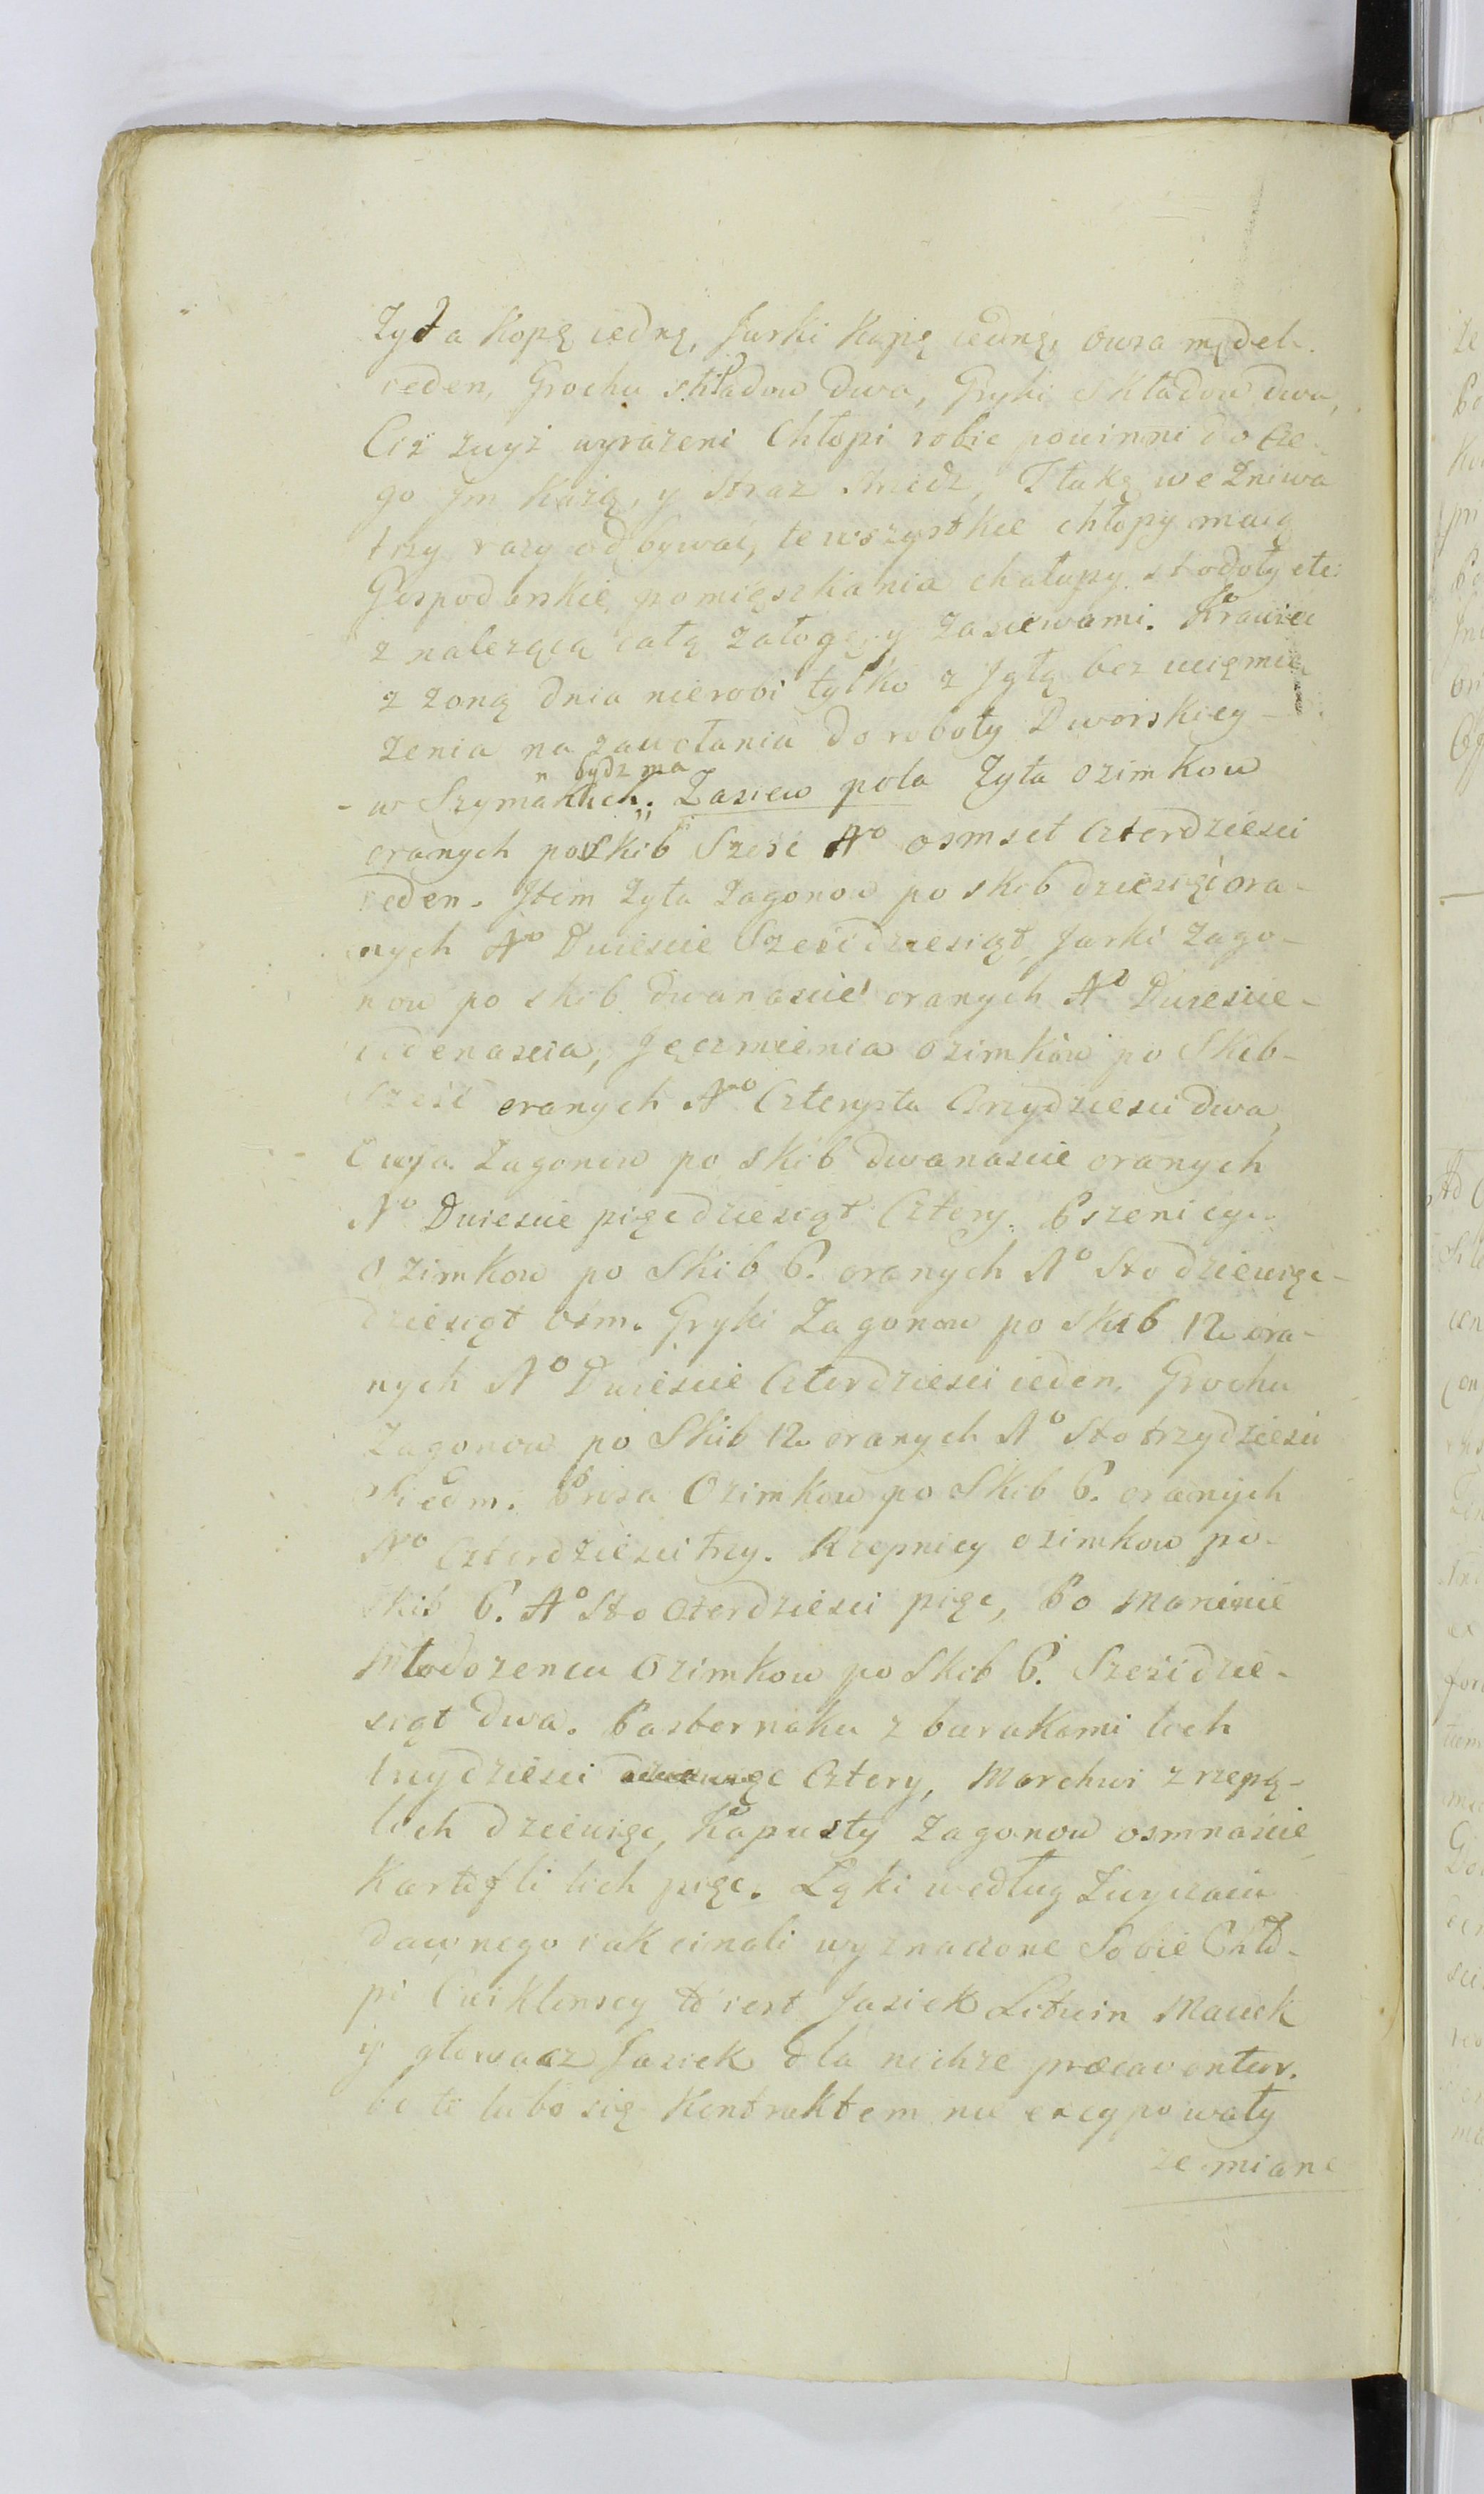 Zyta Kopę iednę, Jarki Kopę iednę, owsa mędel
ieden, Grochu składow dwa, Gryki składow dwa,
Ciż zwyż wyrazeni Chłopi robic powinni do cze-
go Jm Każą, y straz Miedz, Tłukę we Zniwa
trzy razy odbywać, te wszystkie chłopy maią
Gospodarskie pomięszkania chałupy stodoły etc:
z należącą całą załogą, y zasiewami. Krawiec
z zoną dnia nie robi tylko z Jgłą bez ucięmię
zenia na zawołania do roboty Dworskiey
bydz ma
- w Szymakach. Zasiew pola Zyta ozimkow
oranych po skib Sześć No osmset czterdziesci
ieden. Item Zyta Zagonow po skib dziesięć ora-
nych No Dwiescie Sześćdziesiąt, Jarki zago-
now po skib dwanascie oranych No Dwiescie
iedenascia, Jęczmienia ozimków po Skib-
Sześć oranych No Czterysta Trzydziesci dwa,
Owsa Zagonow po skib dwanascie oranych
No Dwiescie pięcdziesiąt Cztery. Pszenicy
Ozimkow po Skib 6. oranych No Sto dziewięc-
dziesiąt osm. Gryki Zagonow po skib 12. ora-
nych No Dwiescie Czterdziesci ieden, Grochu
Zagonow po Skib 12. oranych No Sto trzydziesci
Siedm. Prosa Ozimkow po Skib 6. oranych
No Czterdziesci trzy. Rzepnicy ozimkow po-
skib 6. No Sto czterdziesci pięc, Po Marcinie
Młodozencu Ozimkow po Skib 6. Sześćdzie-
siąt dwa. Pasternaku z burakami loch
trzydziesci Cztery, Marchwi z rzepą-
loch dziewięc, Kapusty Zagonow osmnascie
Kartofli lich pięc. Łąki według Zwyczaiu
dawnego iak cinali wyznaczone Sobie Chło-
pi Cwiklinscy to iest Jasiek Litwin Maciek
y głowacz Jasiek dla nichże praecaventur.
bo te lubo się Kontraktem nie excypowały
ze miane